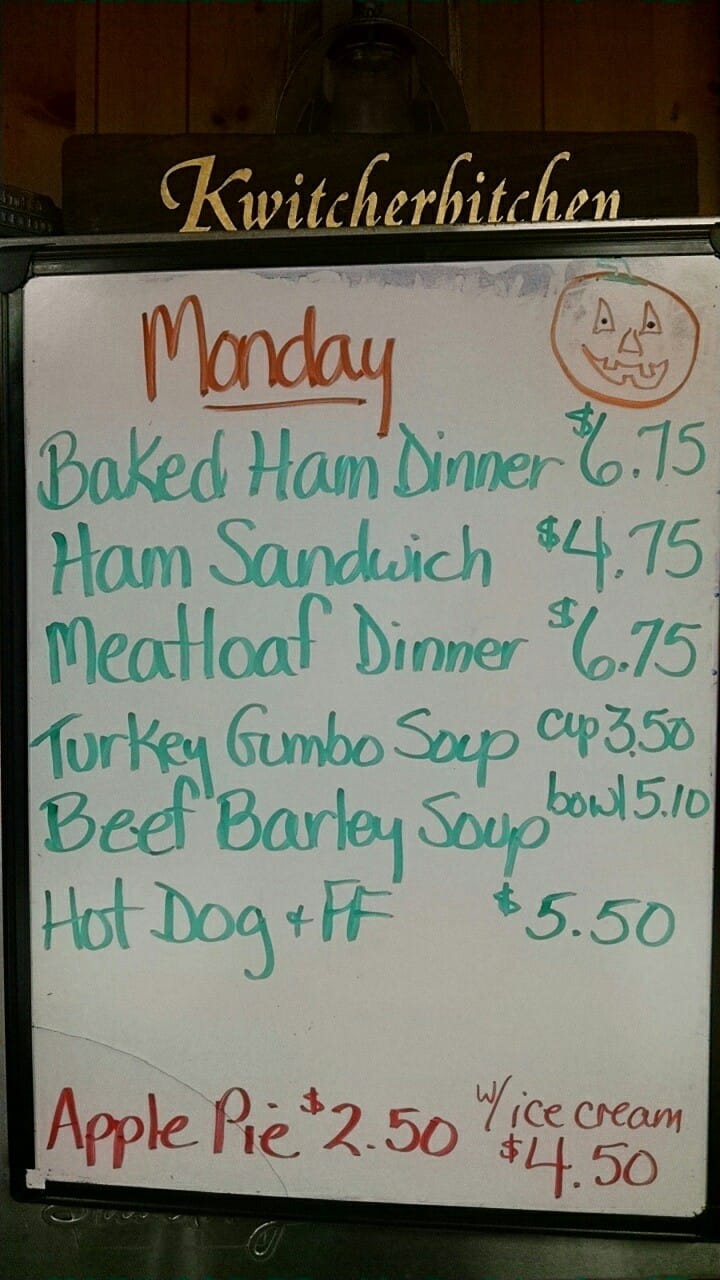 Kwitcherbitchen
Monday
Baked Ham Dinner $6.75
Ham Sandwich $4.75
Meatloaf Dinner $6.75
Turkey Gumbo Soup cup 3.50
Beef Barley Soup bowl 5.10
Hot Dog & FF $5.50
Apple Pie $2.50 w/ ice cream
$4.50